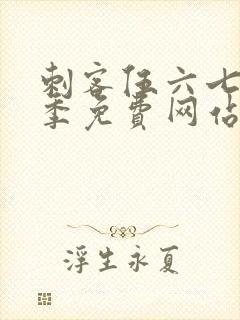 刺客伍六七
季免費网站
浮生永夏